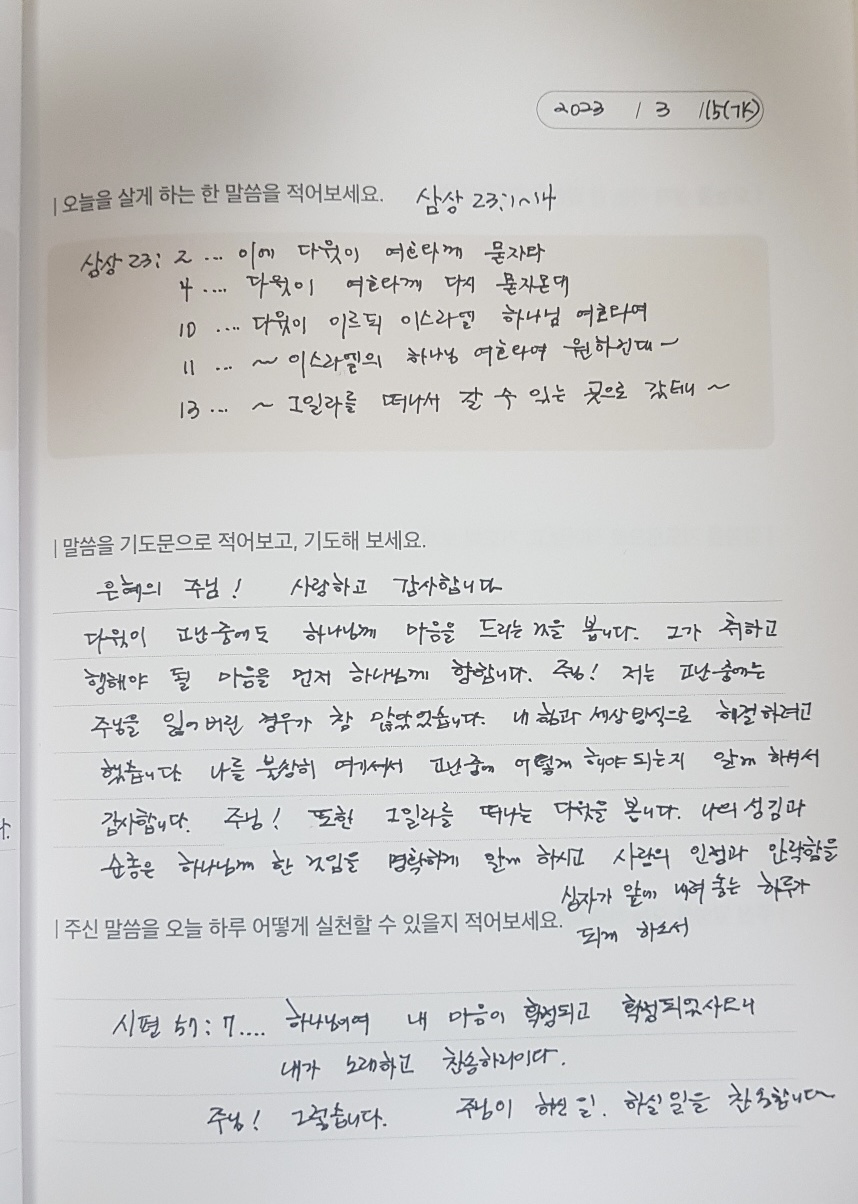 2023 / 3 / 15(수)
| 오늘을 살게 하는 한 말씀을 적어보세요. 삼상 23:1~14
삼상 23: 2 ... 이에 다윗이 여호와께 묻자와
4 .... 다윗이 여호와께 다시 묻자온대
10 .... 다윗이 이르되 이스라엘 하나님 여호와여
11 ... ~ 이스라엘의 하나님 여호와여 원하건대 ~
13 ... ~ 그일라를 떠나서 갈 수 있는 곳으로 갔더니 ~
| 말씀을 기도문으로 적어보고, 기도해 보세요.
은혜의 주님! 사랑하고 감사합니다
다윗이 고난중에도 하나님께 마음을 드리는 것을 봅니다. 그가 취하고
행해야 될 마음을 먼저 하나님께 향합니다. 주님! 저는 고난중에는
주님을 잃어버린 경우가 참 많았었습니다. 내 힘과 세상방식으로 해결하려고
했습니다. 나를 불쌍히 여기셔서 고난중에 어떻게 해야 되는지 알게 하셔서
감사합니다. 주님! 또한 그일라를 떠나는 다윗을 봅니다. 나의 섬김과
순종은 하나님께 한 것임을 명확하게 알게 하시고 사람의 인정과 안락함을
십자가 앞에 내려 놓는 하루가
되게 하소서
| 주신 말씀을 오늘 하루 어떻게 실천할 수 있을지 적어보세요.
시편 57:7.... 하나님이여 내 마음이 확정되고 확정되었사오니
내가 노래하고 찬송하리이다.
주님! 그렇습니다. 주님이 하신 일. 하실 일을 찬송합니다